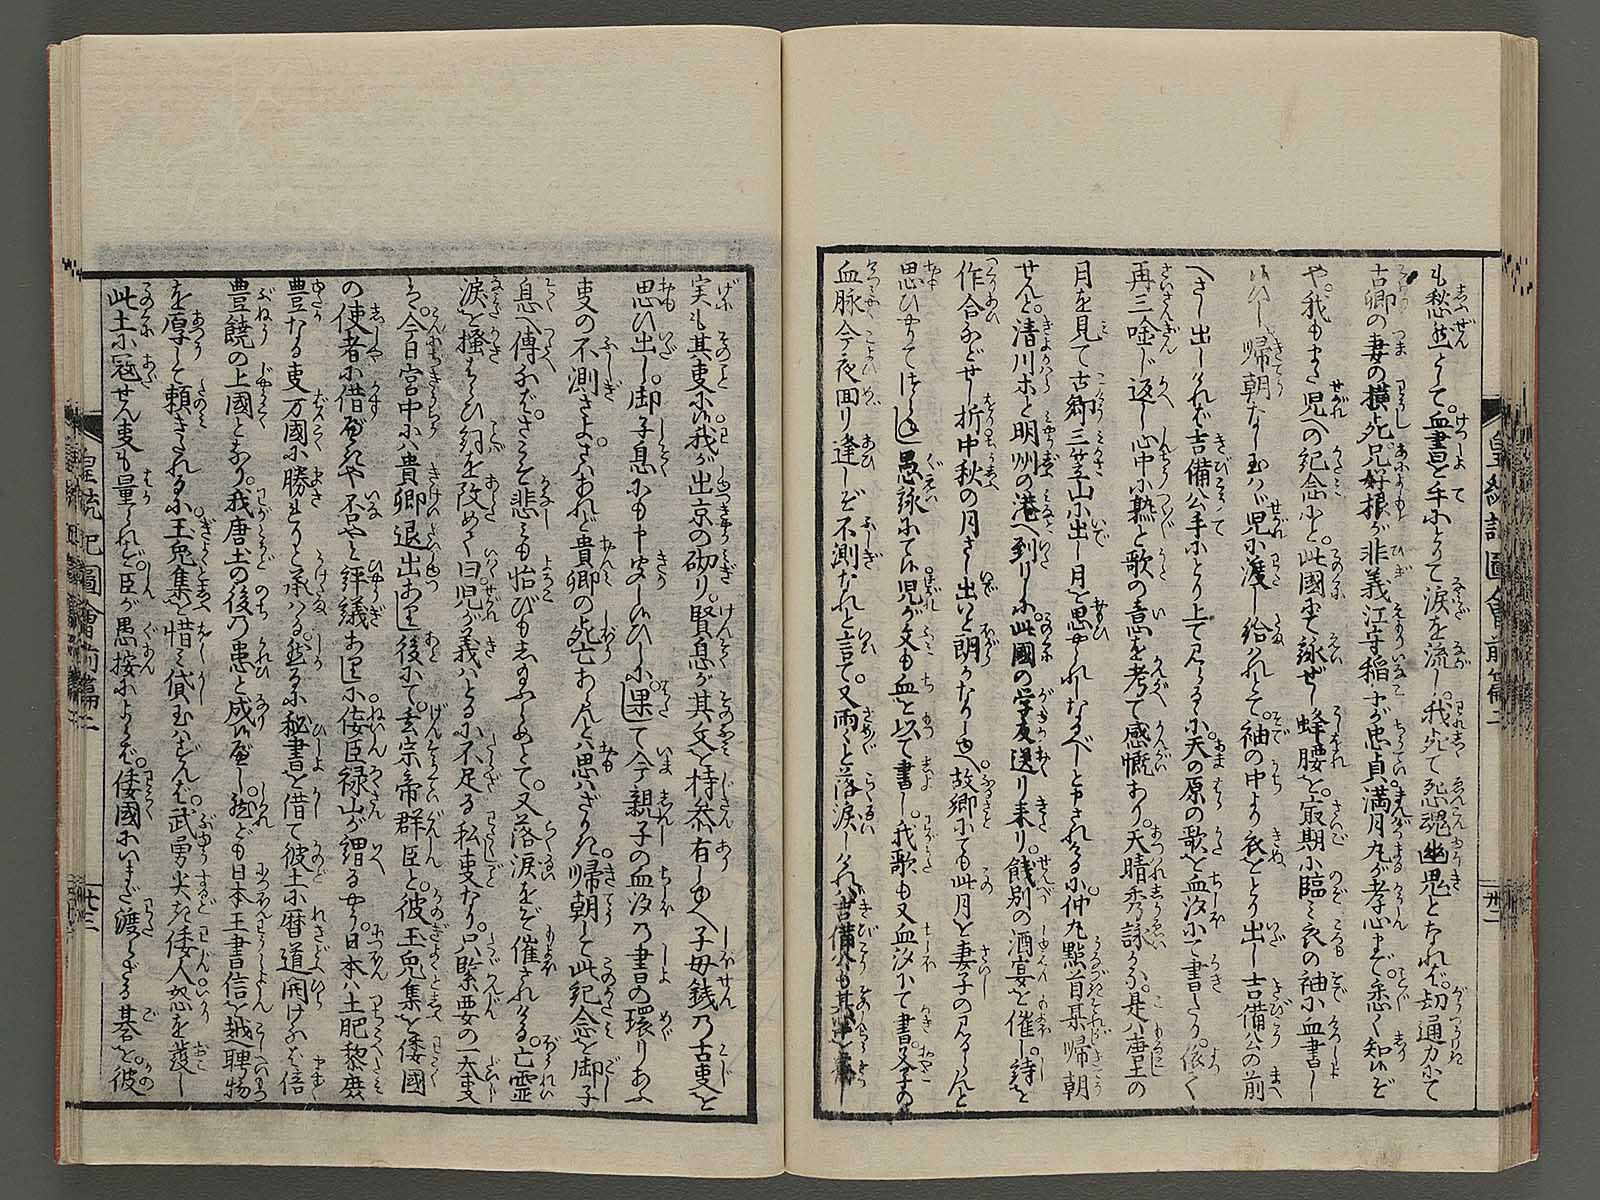 も愁然として。血書を手にとりて涙を流し。我死て怨魂幽鬼となれば。却通力にて
古郷の妻の横死。兄好根が非義江守稲才が忠貞満月丸が孝心まで悉く知いど
や。我もまた児への紀念にと。此國にて詠ぜし蜂腰を。最期に臨み衣の袖に血書し
帰朝なし玉はゞ児に渡し給はれとて。袖の中より衣をとり出し吉備公の前
へさし出しければ吉備公手にとり上て見らるゝに。天の原の歌を血汐にて書したり。依て
再三唫じ返し心中に熟と歌の意を考て感慨あり。天晴秀詠かな。是ハ唐土の
月を見て古郷三笠山に出し月を思やられしなるべしと申されけるに。仲丸點首某帰朝
せんと。清川ホと明州の港へ到りしに此國の学友送り来り。餞別の酒宴を催し。詩を
作合などせし折中秋の月さし出いと朗かなりしゆへ故郷にても此月を妻子の見るらんと
思ひやりてはべる愚詠にてい児が文も血を以て書し。我歌も又血汐にて書。父子の
血脉今夜回り逢しど不測なれと言て。又雨々と落涙しければ吉備公も其
実も其叓にい我が出京の砌り。賢息が其文を持参有しゆへ子母銭乃古叓を
思ひ出し。御子息にも申聞しいひしに。果して今親子の血汐乃書の環りあふ
叓の不測さよ。さハあれど貴卿の死亡あらんとハ思ハざりき。帰朝して此紀念を御子
息へ傳なバ。さこそ悲しミも怡びもし玉ふらめとて。又落涙をぞ催されける。亡霊
涙を掻はらひ詞を改めて曰児が義ハとるに不足る私叓なり。只緊要の一大叓
ハ。今日宮中にハ貴卿退出あり後にて。玄宗帝群臣と。彼玉兎集を倭國
の使者に借べきや否やと評議ありしに。佞臣禄山が謂るやう。日本ハ土肥黎庶
豊なる叓万國に勝れりと承ハる。然るに秘書を借て彼土に暦道開けなバ倍
豊饒の上國となり。我唐土の後乃患と成いべし。然ども日本王書信を越聘物
を厚して頼きたれるに。玉兎集を惜ミ貸玉ハずんバ。武勇犬き倭人怒を發し
此土に冦せん叓も量られず。臣が愚按によれバ。倭國にいまだ渡らざる碁を。彼
皇統記圖會前篇二
卅二
皇統記圖會前篇二
卅三